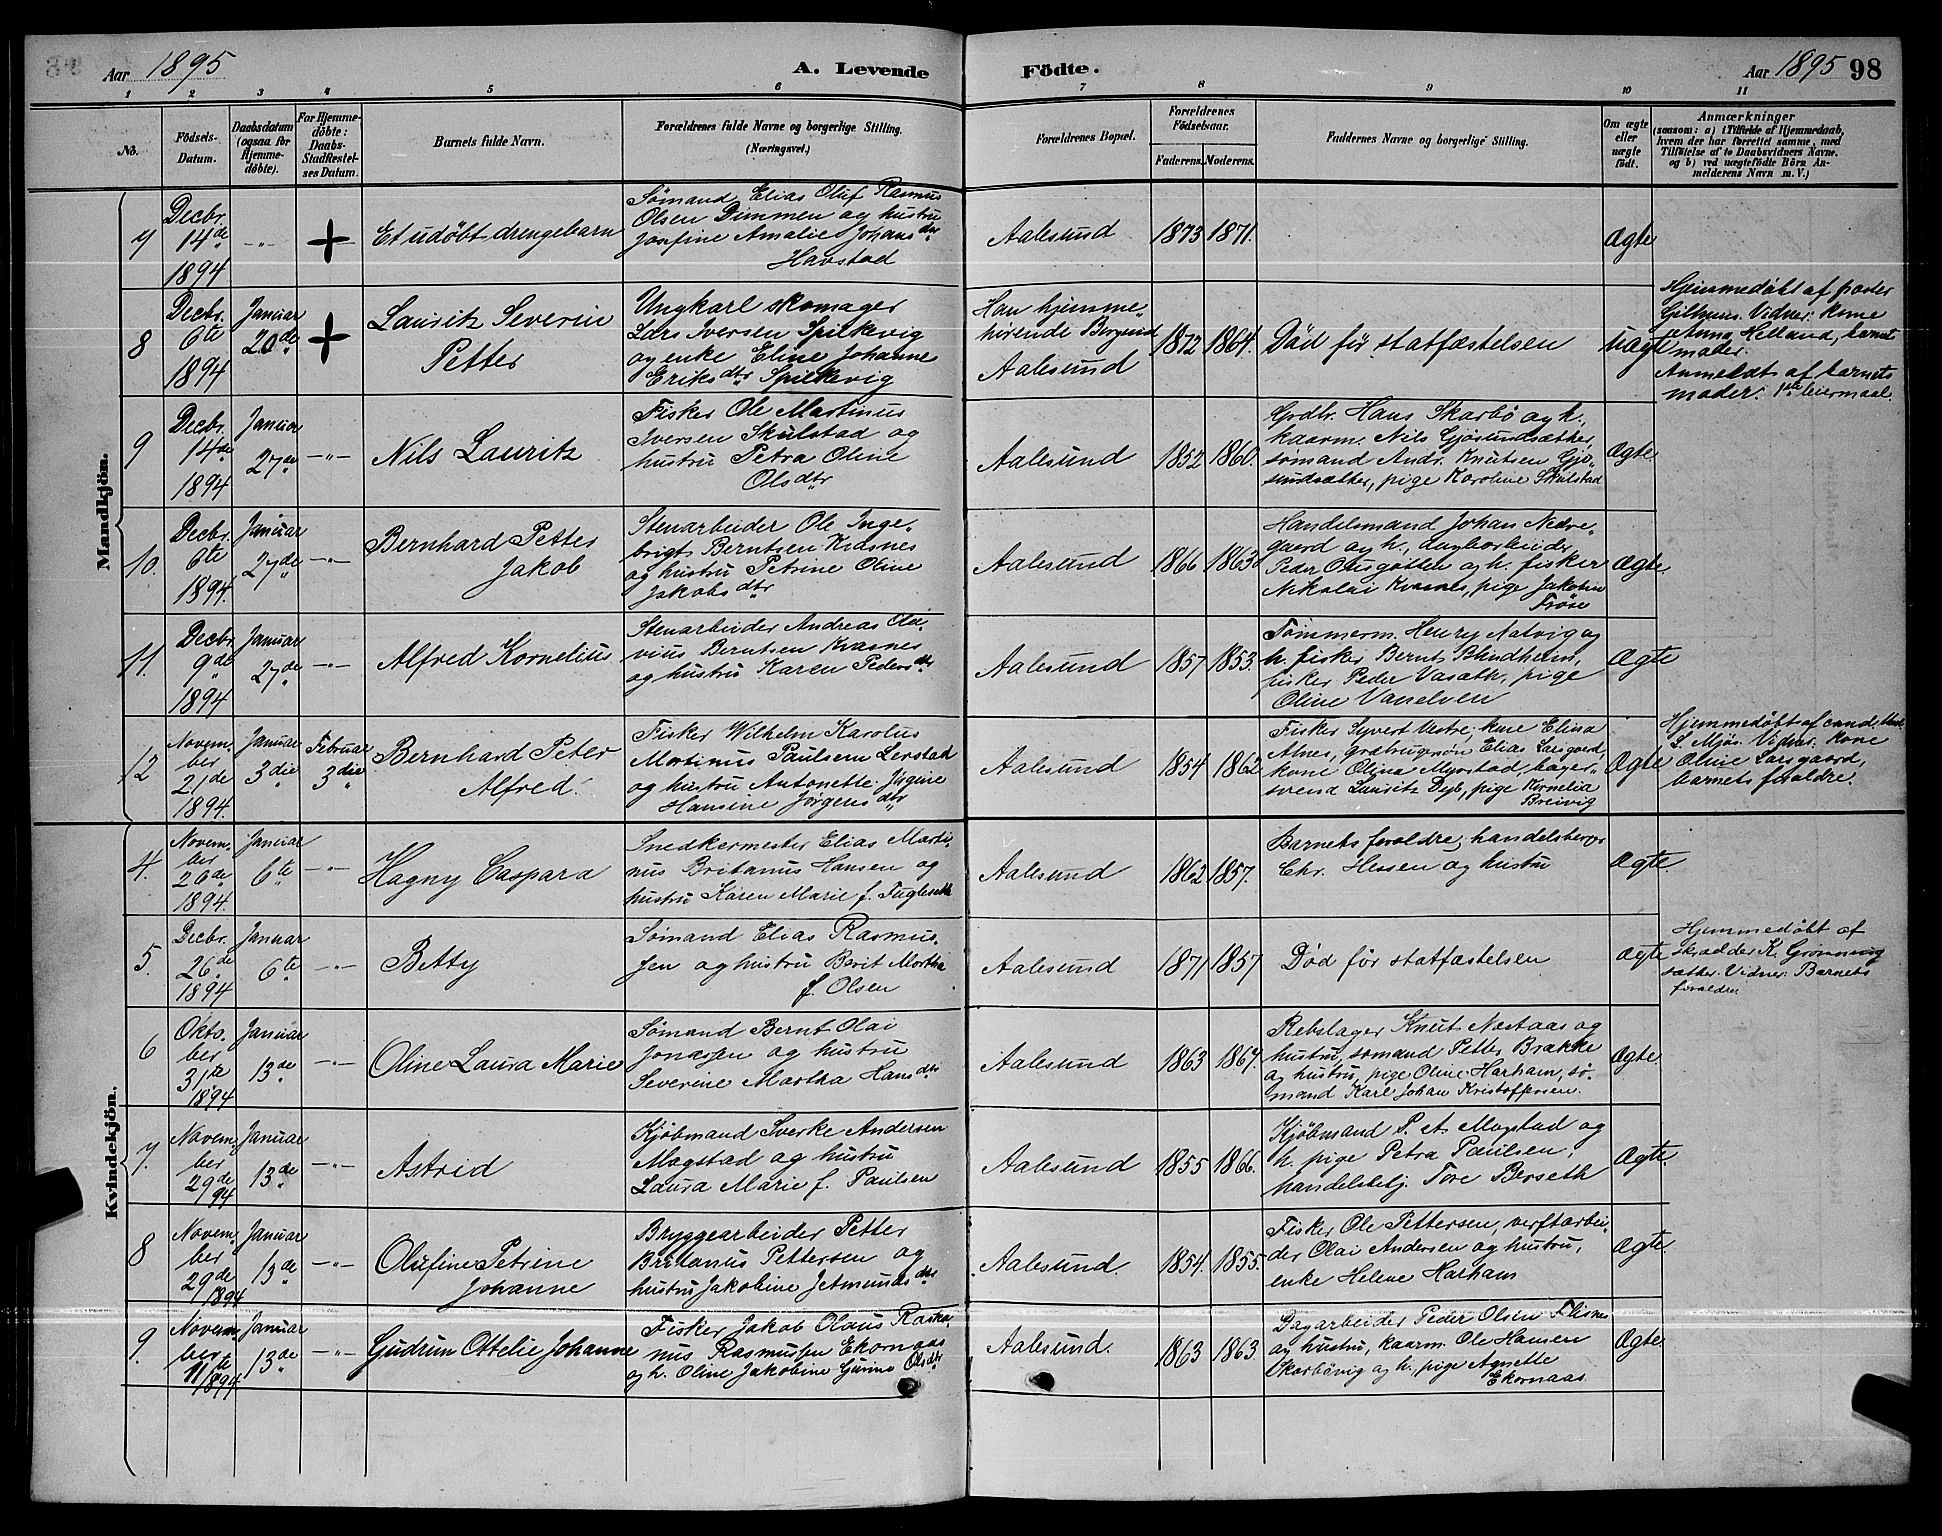 Aar 1895
A. Levende
Födte.
Aar 1895 98
1 2 3 4 5 6 7 8 9 10 11
No.
Födsels-
Datum.
Daabsdatum
(ogsaa for
Hjemme-
döbte).
For Hjemme-
döbte:
Daabs-
Stadfæstel-
ses Datum.
Barnets fulde Navn.
Forældrenes fulde Navne og borgerlige Stilling.
(Næringsvei.)
Forældrenes Bopæl.
Forældrenes
Födselsaar.
Faderens. Moderens.
Faddernes Navne og borgerlige Stilling.
Om ægte
eller
uægte
födt.
Anmærkninger
(saasom: a) i Tilfælde af Hjemmedaab,
hvem der har forrettet samme, med
Tilföielse af to Daabsvidners Navne,
og b) ved uægtefödte Börn An-
melderens Navn m. V.)
Mandkjön.
7
Decbr.
14de
1894
-"-
Et udöbt drengebarn
Sømand Elias Oluf Rasmus
Olsen Dimmen og hustru
Josefine Amalie Johansdtr
Havstad
Aalesund
1873 1871.
Ægte
8
Decbr.
6te
1894
Januar
20de
Lauritz Severin
Petter
Ungkarl skomager
Lars Iversen Spilkevig
og enke Eline Johanne
Eriksdtr Spilkevig
Han hjemme-
hørende Borgund
Aalesund
1872 1864.
Död för statfæstelsen
uægte
Hjemmedöbt af pastor
Vidner: kone
Anna Helland, barnets
moder.
Anmeldt af barnets
moder. 1ste leiermaal.
9
Decbr.
14de
1894
Januar
27de
-"-
Nils Lauritz
Fisker Ole Martinus
Iversen Skulstad og
hustru Petra Oline
Olsdtr
Aalesund
1852 1860.
Grdbr. Hans Skarbö og h.
kaarm. Nils Gjösundsæther,
sømand Andr. Knutsen Gjö-
sundsæther, pige Karoline Skulstad
Ægte.
10.
Decbr.
6te
1894.
Januar
27de
-"-
Bernhard Petter
Jakob
Stenarbeider Ole Inge-
brigt Berntsen Kvasnes
og hustru Petrine Oline
Jakobsdtr
Aalesund
1866 1863
Handelsmand Johan Nedre-
gaard og h., dagarbeider
Peder Olisgötten og h. fisker
Nikolai Kvasnes, pige Jakobine
Fröse
Ægte.
11.
Decbr.
9de
1894
Januar
27de
-"-
Alfred Kornelius
Stenarbeider Andreas Ola-
vius Berntsen Kvasnes
og hustru Karen Pedersdtr
Aalesund
1857 1853.
Tømmerm. Henry Nalvig og
h. fisker Bernt Blindheim,
fisker Peder Vasæth, pige
Oline Vanelven
Ægte
12
Novem-
ber
21de
1894
Januar
3die
Februar
3die
Bernhard Peter
Alfred.
Fisker Wilhelm Karolus
Martinus Paulsen Lerstad
og hustru Antonette Jygine
Hansine Jörgensdtr
Aalesund
1854 1862
Fisker Syvert Vestre, kone Elina
Alnes, Elias Larsgaard,
kone Olina Myrstad, bager-
svend Lauritz Dyb, pige Kornelia
Breivig
Ægte
Hjemmedöbt af cand.
S. Mjös. Vidner: kone
Oline Larsgaard,
barnets foraldre.
Kvindekjön.
4.
Novem-
ber
26de
1894.
Januar
6te
-"-
Hagny Caspara
Snedkermester Elias Marti-
nus Britanus Hansen og
hustru Karen Marie f. Fuglseth
Aalesund
1862 1857.
Barnets foraldre, handelsborger
Chr. Hessen og hustru
Ægte.
5.
Decbr.
26de
1894
Januar
6te
-"-
Betty
Sømand Elias Rasmus-
sen og hustru Berit Martha
f. Olsen
Aalesund
1871 1857
Död för statfæstelsen
Ægte
Hjemmedöbt af
skrædder K. Grønning-
sæther. Vidner: Barnets
foraldre.
6
Okto-
ber
31te
1894
Januar
13de
-"-
Oline Laura Marie
Sømand Bernt Olai
Jonassen og hustru
Severine Martha Hansdtr
Aalesund
1863 1867.
Rebslager Knut Nastaas og
hustru, sømand Petter Brække
og hustru, pige Oline Harham, sø-
mand Karl Johan Kristoffersen.
Ægte.
7.
Novem-
ber
29de
94
Januar
13de
-"-
Astrid
Kjøbmand Sverke Andersen
Mogstad og hustru
Laura Marie f. Paulsen
Aalesund
1855 1866.
Kjøbmand P. A. Mogstad og
h. pige Petra Paulsen,
handelsbetj. Tore Berseth
Ægte.
8
Novem-
ber
29de
1894
Januar
13de
-"-
Olufine Petrine
Johanne
Bryggearbeider Petter
Britanus Pettersen og
hustru Jakobine Jetmundsdtr
Aalesund.
1854. 1855.
Fisker Ole Pettersen, verftarbei-
der Olai Andersen og hustru,
enke Helene Harham
Ægte.
9.
Novem-
ber
11te
1894
Januar
13de
-"-
Gudrun Ottelie Johanne
Fisker Jakob Olaus Raska-
nus Rasmussen Ekornaas
og h. Oline Jakobine Gurine Olsdtr
Aalesund.
1863 1863.
Dagarbeider Peder Olsen Flisnes
og hustru, kaarm. Ole Hansen
Skarbövig og h., pige Agnette
Ekornaas
Ægte.